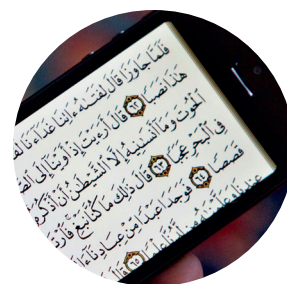 فَلَمَّا جَاوَزَا قَالَ لِفَتَىٰهُ ءَاتِنَا غَدَآءَنَا
هَٰذَا نَصَبًا ٦٢ قَالَ أَرَءَيْتَ إِذْ أَوَيْنَآ إِلَى
ٱلْحُوتَ وَمَآ أَنسَىٰنِيهُ إِلَّا ٱلشَّيْطَٰنُ أَنْ أَذْكُرَهُۥ
فِى ٱلْبَحْرِ عَجَبًا ٦٣ قَالَ ذَٰلِكَ مَا كُنَّا نَبْغِ ۚ فَٱرْتَدَّا
قَصَصًا ٦٤ فَوَجَدَا عَبْدًا مِّنْ عِبَادِنَآ ءَاتَيْنَٰهُ
٦٥ قَالَ